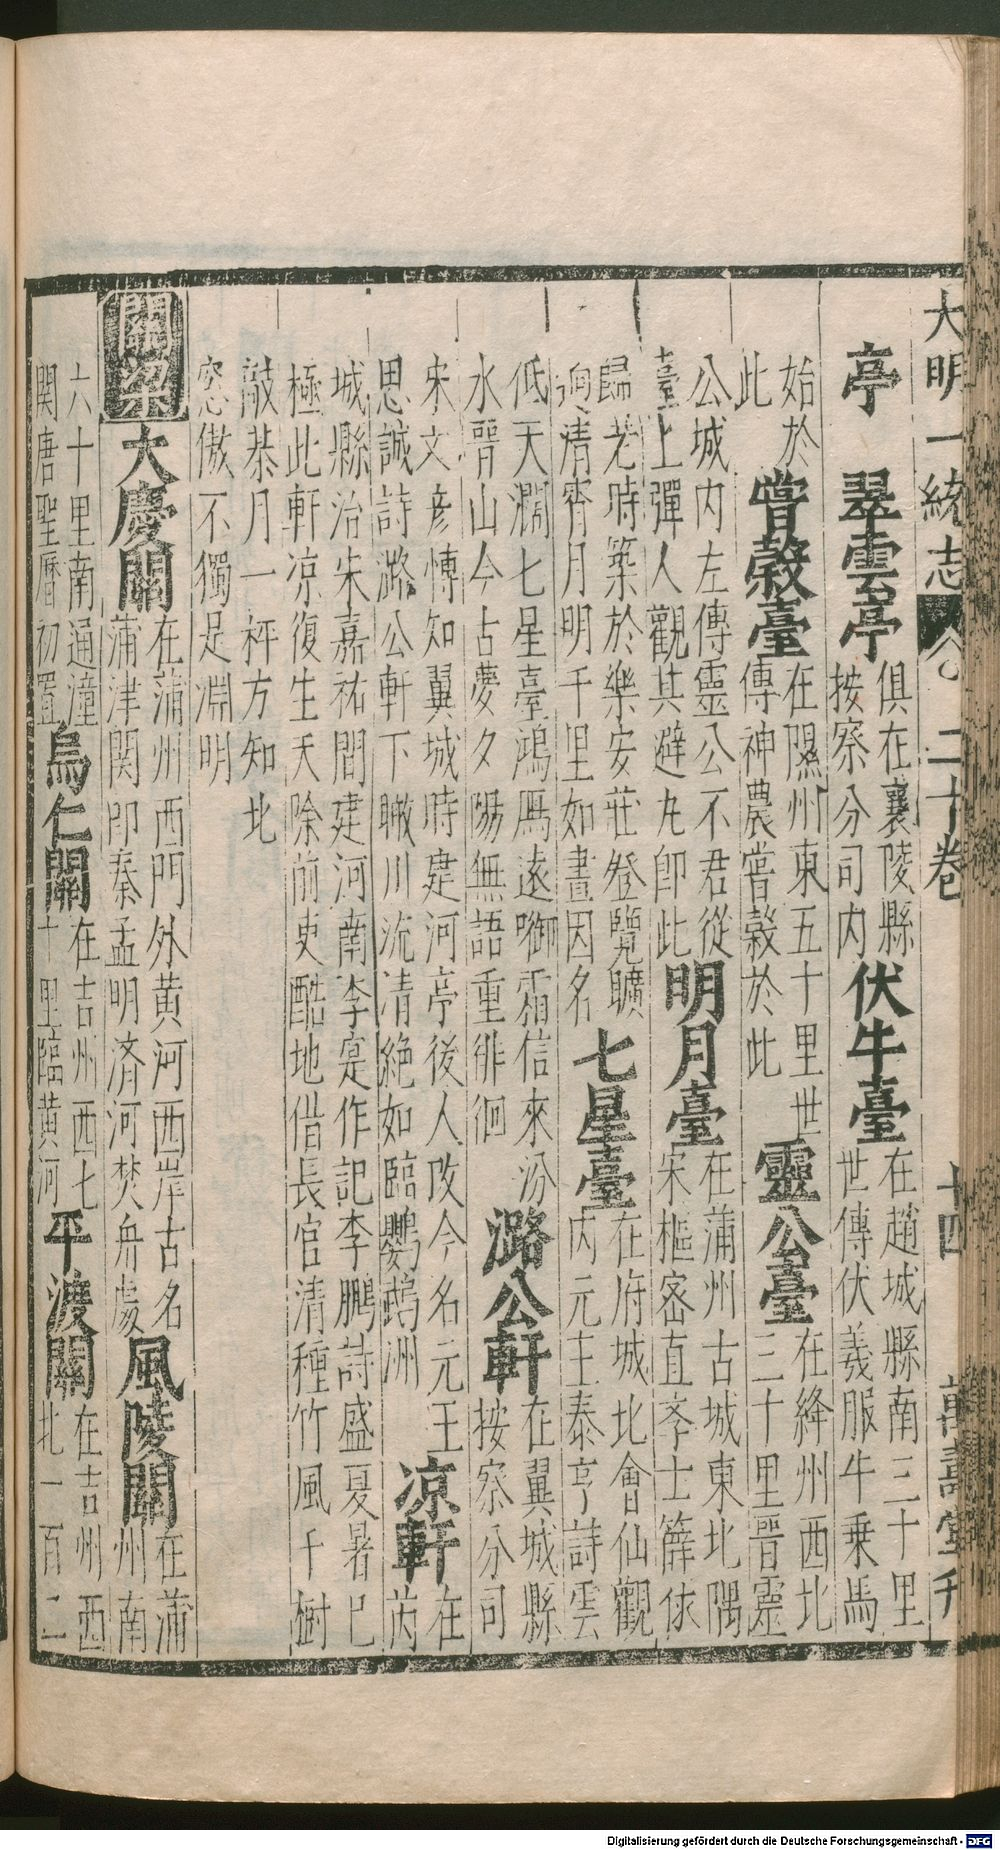 大明一統志 二十卷 十四 萬壽堂刊
亭 翠雲亭 俱在襄陵縣
按察分司內 伏牛臺 在趙城縣南三十里
世傳伏羲服牛乘馬
始於
此 嘗穀臺 在隰州東五十里世
傳神農嘗穀於此 靈公臺 在絳州西北
三十里晉靈
公城內左傳靈公不君從
臺上彈人觀其避丸即此 明月臺 在蒲州古城東北隅
宋樞密直學士薛俅
歸老時築於樂安莊登覽曠
逈清宵月明千里如晝因名 七星臺 在府城北會仙觀
內元王泰亨詩雲
低天濶七星臺鴻鴈遠啣霜信來汾
水晉山今古夢夕陽無語重徘徊 潞公軒 在翼城縣
按察分司
宋文彥愽知翼城時建河亭後人改今名元王
思誠詩潞公軒下瞰川流清絶如臨鸚鵡洲 凉軒 在
芮
城縣治宋嘉祐間建河南李寔作記李鵬詩盛夏暑已
極此軒凉復生天除前吏酷地借長官清種竹風千樹
敲棊月一枰方知北
窓傲不獨是淵明
關梁 大慶關 在蒲州西門外黄河西岸古名
蒲津関即秦孟明済河焚舟處 風陵關 在蒲
州南
六十里南通潼
関唐聖曆初置 烏仁關 在吉州西七
十里臨黄河 平渡關 在吉州西
北一百二
Digitalisierung gefördert durch die Deutsche Forschungsgemeinschaft - DFG